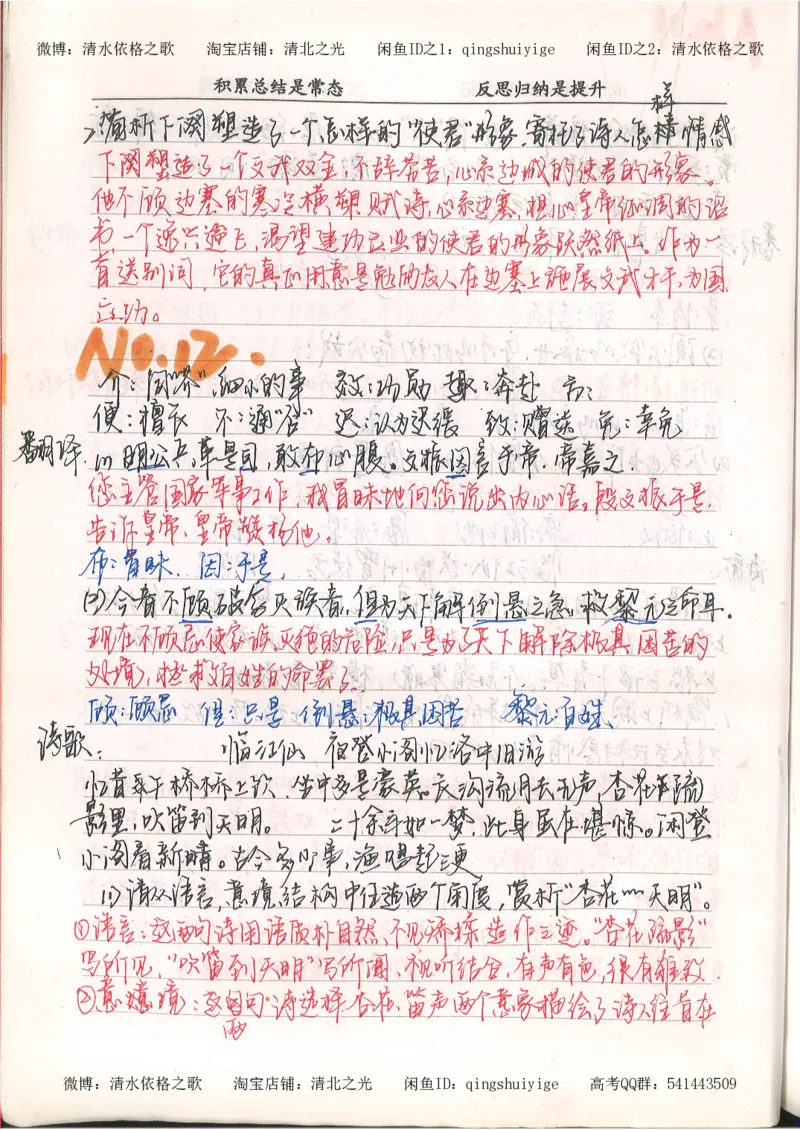 微博：清水依格之歌 淘宝店铺：清北之光 闲鱼ID之1：qingshuiyige 闲鱼ID之2：清水依格之歌
积累总结是常态 反思归纳是提升
样
>简析下阕塑造了一个怎样的“使君”形象，寄托了诗人怎情感
下阕塑造了一个文武双全，不辞劳苦，心系边城的使君的形象。
他不顾边塞的寒冷横塑赋诗，心系边塞，担心皇帝征询的诏
书，一个逸兴遄飞，渴望建功立业的使君的形象跃然纸上。作为一
首送别词，它的真正用意是勉励友人在边塞上施展文武才干，为国
立功。
NO.12.
介：同“芥”，细小的事 效：功勋 趣：奔赴 方：
便：擅长 不：通“否” 迟：认为迟缓 致：赠送 免：幸免
翻译 (1)明公兵革是司，敢布心腹。文振因言于帝，帝嘉之.
您主管国家军事工作，我冒昧地向您说出内心话。段文振于是
告诉皇帝，皇帝赞扬他。
布：冒昧. 因：于是.
(2)今者不顾破家灭族者，但为天下解倒悬之急，救黎元之命耳。
现在不顾忌使家族灭绝的危险，只是为了天下解除极其困苦的
处境，拯救百姓的命罢了。
顾：顾忌 但：只是 倒悬：极其困苦 黎元：百姓.
诗歌： 临江仙 夜登小阁忆洛中旧游
忆昔午桥桥上饮，坐中多是豪英。长沟流月去无声，杏花疏
影里，吹笛到天明。 二十余年如一梦，此身虽在堪惊。闲登
小阁看新晴。古今多少事，渔唱起三更
(1)请从语言，意境，结构中任选两个角度，赏析“杏花……天明”。
①语言：这两句诗用语质朴自然，不见矫揉造作之迹。“杏花疏影”
写所见，“吹笛到天明”写所闻，视听结合，有声有色，很有雅致.
②意境：这句诗选择杏花、笛声两个意象描绘了诗人往昔在
两
微博：清水依格之歌 淘宝店铺：清北之光 闲鱼ID：qingshuiyige 高考QQ群：541443509